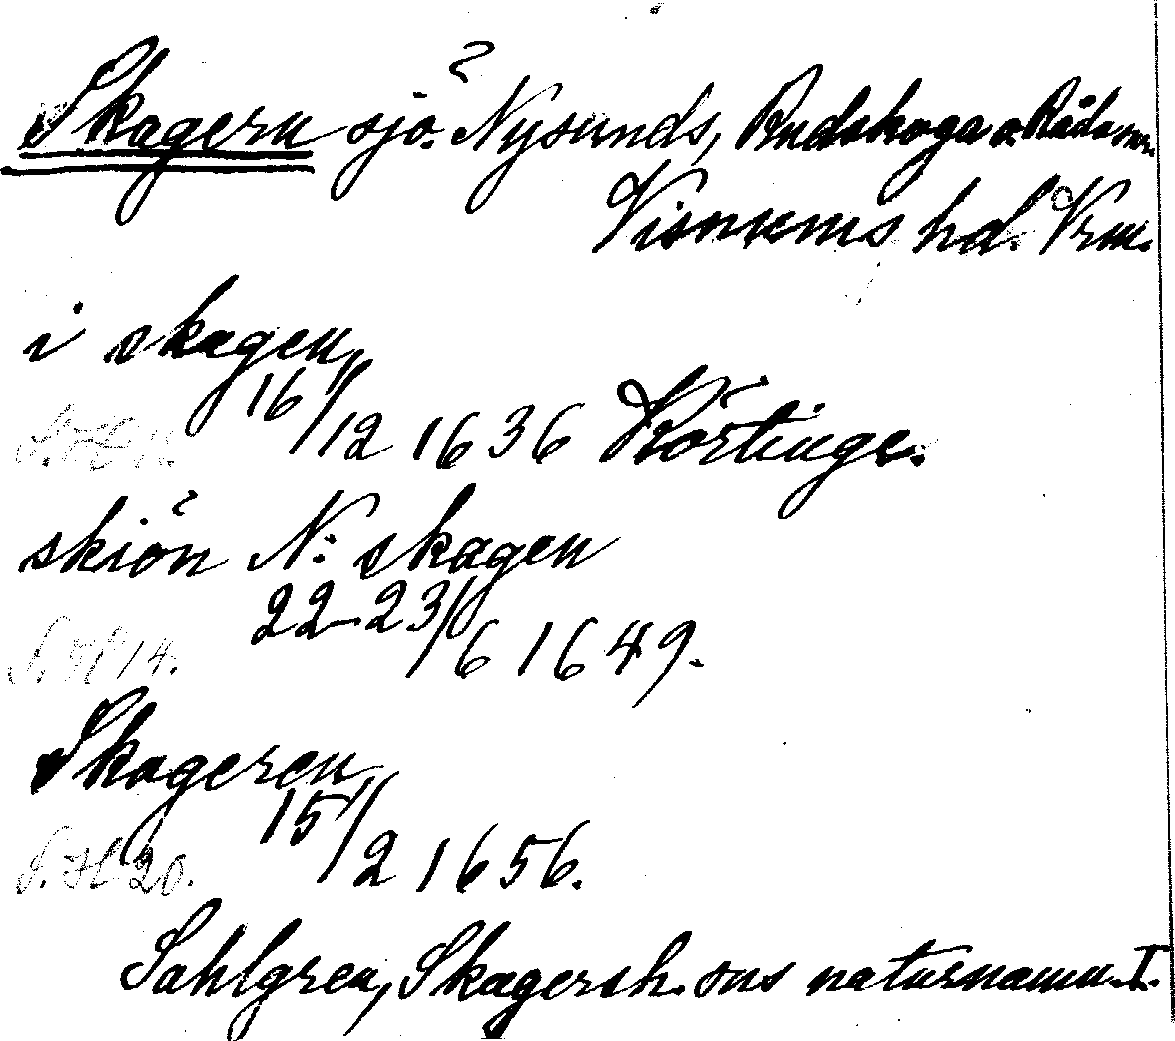 Skagern sjö. Nysunds, Rudskoga o. Råda snr.
Visnums hd. Vrm.
i skagen
16/12 1636 Körtinge.
skiön N: skagen
22-23/6 1649.
S. H 14.
Skageren
15/2 1656.
S. H 20.
Sahlgren, Skagersh. sns naturnamn. I.